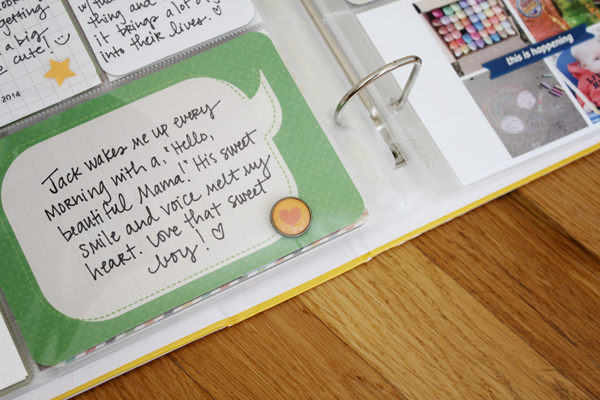 getting
a big
cute!
2014
thing and
it brings a lot of
into their lives.
Jack wakes me up every
morning with a, "Hello,
beautiful Mama!" His sweet
smile and voice melt my
heart. Love that sweet
boy!
this is happening